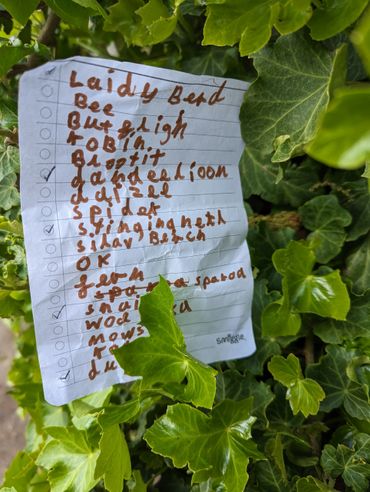 Laidy Berd
Bee
Buterfligh
robin
Blootit
dandeelioon
daizee
spider
stinging neth
silav Berch
OK
fern
spara sparoa
snai
wo
mows
du
smiggle